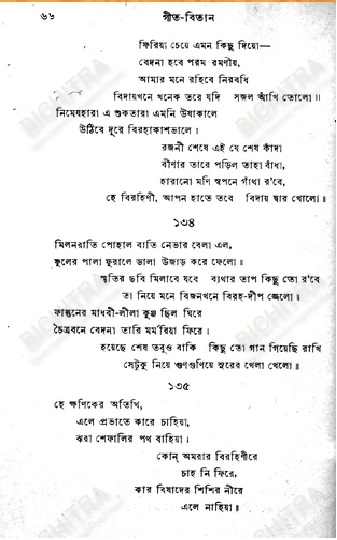 ৬৬ গীত-বিতান
ফিরিয়া চেয়ে এমন কিছু দিয়ো—
বেদনা হবে পরম রমণীয়,
আমার মনে রহিবে নিরবধি
বিদায়খনে খনেক তরে যদি সজল আঁখি তোলো॥
নিমেষহারা এ শুকতারা এমনি উষাকালে
উঠিবে দূরে বিরহাকাশভালে।
রজনী শেষে এই যে শেষ কাঁদা
বীণার তারে পড়িল তাহা বাঁধা,
হারানো মণি স্বপনে গাঁথা র'বে,
হে বিরহিণী, আপন হাতে তবে বিদায় দ্বার খোলো॥
১৩৪
মিলনরাতি পোহাল বাতি নেভার বেলা এল,
ফুলের পালা ফুরালে ডালা উজাড় করে ফেলো॥
স্মৃতির ছবি মিলাবে যবে ব্যথার তাপ কিছু তো র'বে
তা নিয়ে মনে বিজনখনে বিরহ-দীপ জ্বেলো॥
ফাল্গুনের মাধবী-লীলা কুঞ্জ ছিল ঘিরে
চৈত্রবনে বেদনা তারি মর্মরিয়া ফিরে।
হয়েছে শেষ তবুও বাকি কিছু তো গান গিয়েছি রাখি
সেটুকু নিয়ে গুণগুণিয়ে সুরের খেলা খেলো॥
১৩৫
হে ক্ষণিকের অতিথি,
এলে প্রভাতে কারে চাহিয়া,
ঝরা শেফালির পথ বাহিয়া।
কোন্ অমরার বিরহিণীরে
চাহ নি ফিরে,
কার বিষাদের শিশির নীরে
এলে নাহিয়া॥
BICHITRA